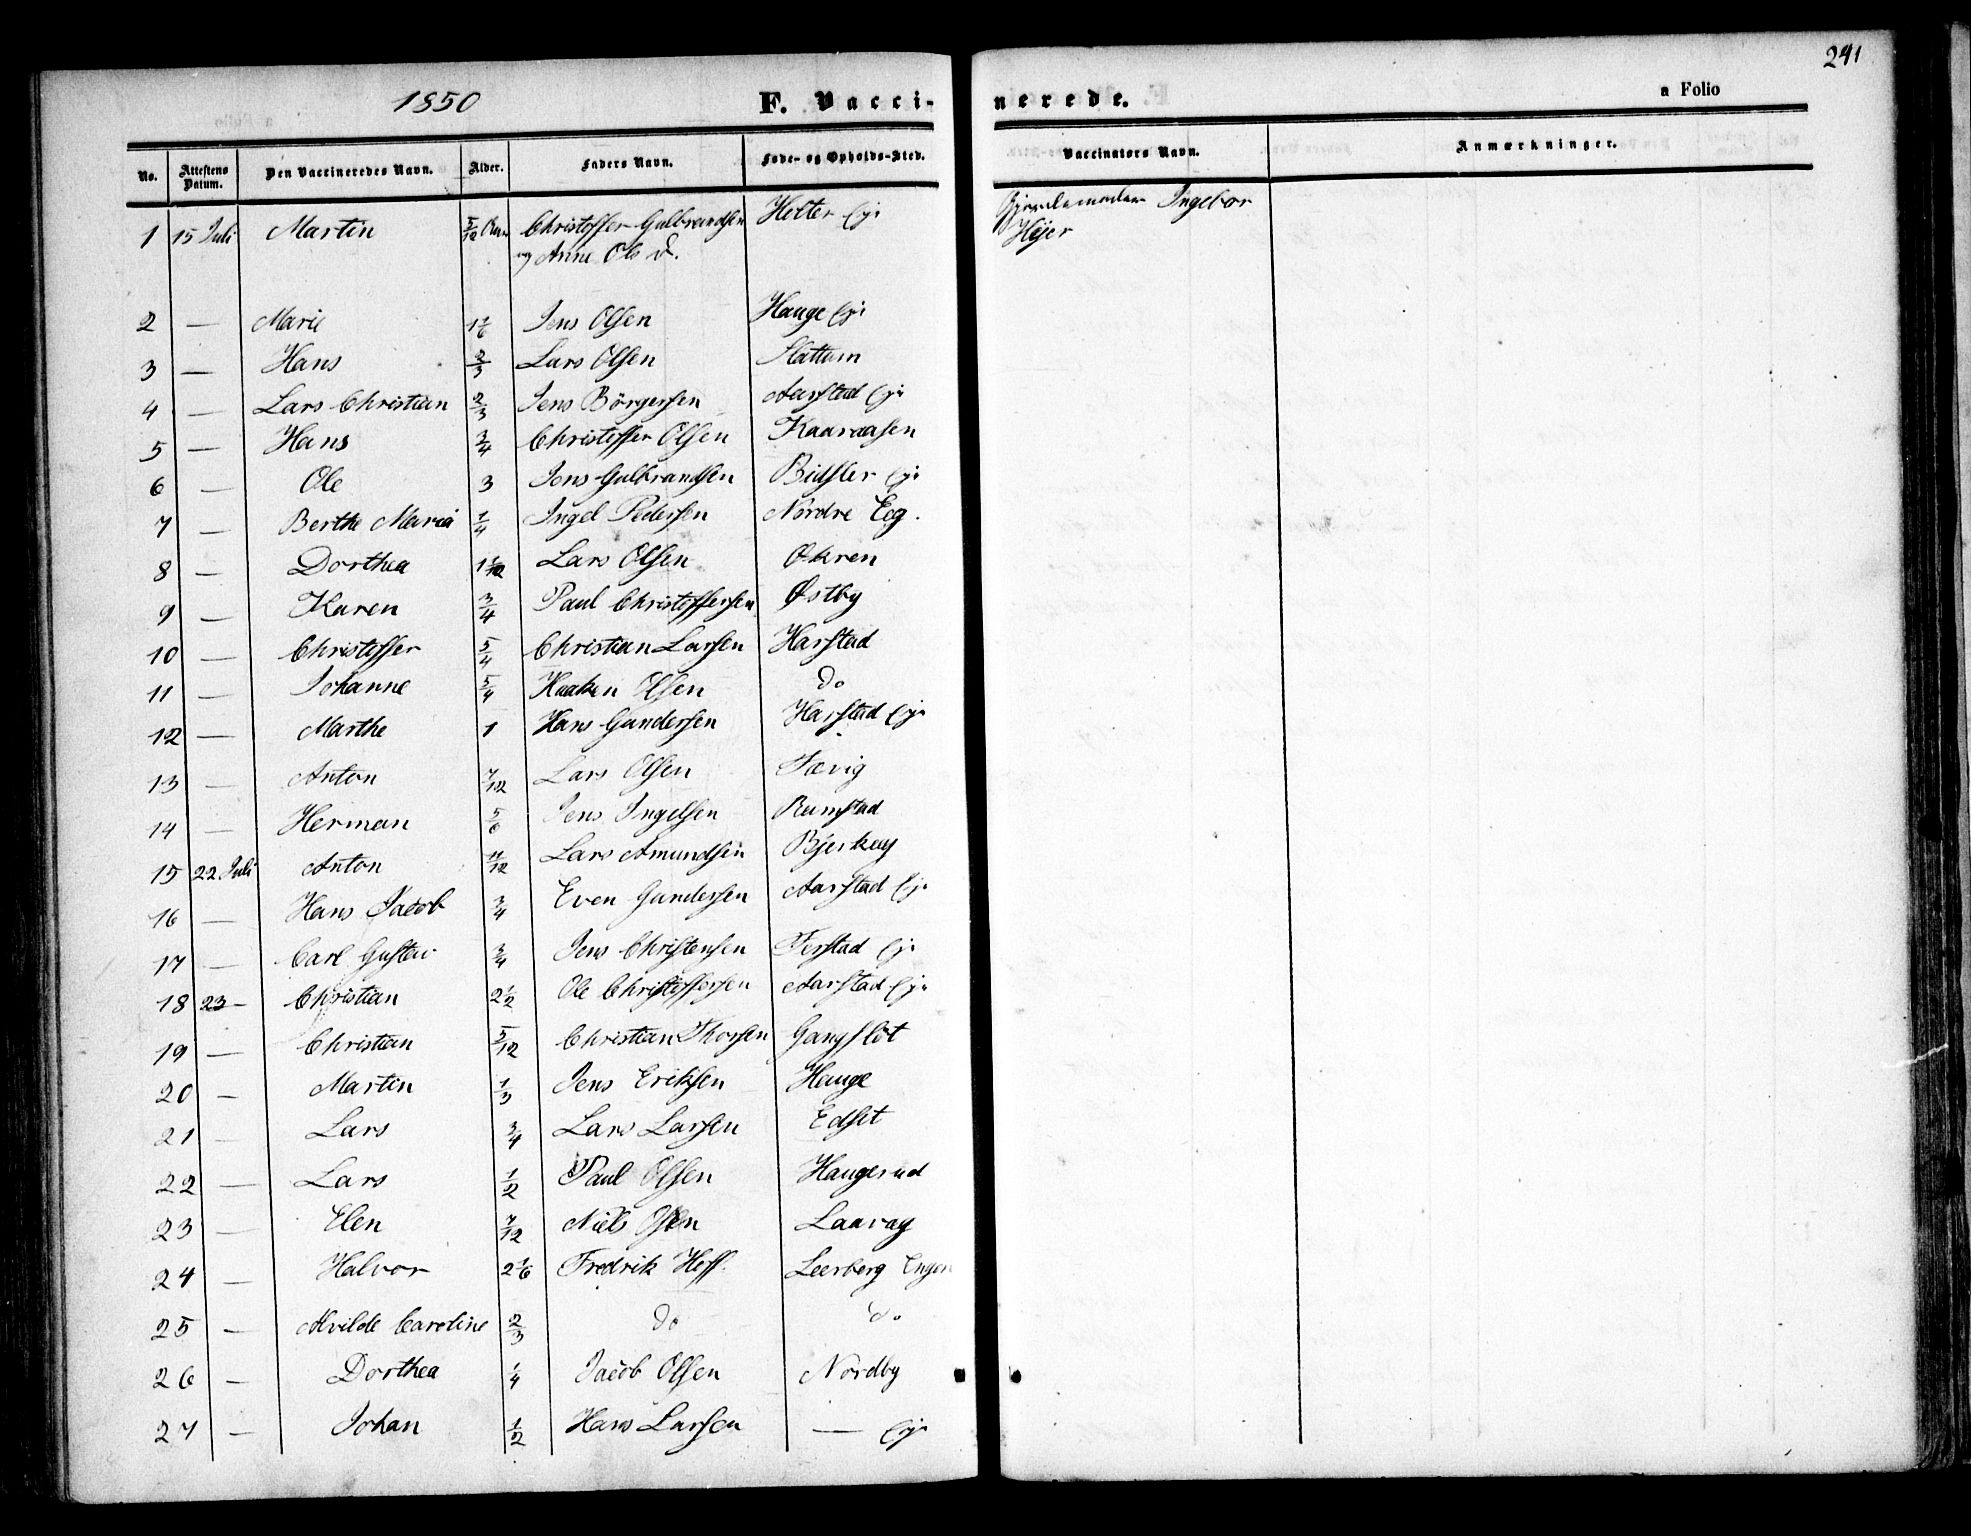 241
1850 F. Vaccinerede. a Folio
No. Attestens Datum. Den Vaccineredes Navn. Alder. Faders Navn. Føde- og Opholds-Sted. Vaccinators Navn. Anmærkninger.
1 15 Juli Martin 5/12 Aar Christoffer Gulbrandsen Helter Eje Gjordemoder Ingebor
og Anne Ols D. Hejer
2 — Marie 1 1/6 Jens Olsen Hauge Eje
3 — Hans 2/3 Lars Olsen Slattum
4 — Lars Christian 2/3 Jens Börgersen Aarstad Eje
5 — Hans 3/4 Christoffer Olsen Kaaraasen
6 — Ole 3 Jens Gulbrandsen Bidsler Eje
7 — Berthe Maria 1/4 Ingel Pedersen Nordre Eeg.
8 — Dorthea Lars Olsen Økren
9 — Karen 3/4 Paul Christoffersen Østby
10 — Christoffer 5/4 Christian Larsen Harstad
11 — Johanne 5/4 Haaken Olsen do
12 — Marthe 1 Hans Gundersen Harstad Eje
13 — Anton 7/12 Lars Olsen Sævig
14 — Herman 5/6 Jens Ingelsen Rumstad
15 22 Juli Anton 11/12 Lars Amundsen Bjerkay
16 — Hans Jacob 3/4 Even Gundersen Aarstad Eje
17 — Carl Gustav 3/4 Jens Christensen Ferstad Eje
18 23 — Christian 2 1/2 Ole Christoffersen Aarstad Eje
19 — Christian 5/12 Christian Thorsen Gangflöt
20 — Martin 1/3 Jens Eriksen Hauge
21 — Lars 3/4 Lars Larsen Edset
22 — Lars 1/2 Paul Olsen Haugerud
23 — Elen 7/12 Niels Olsen Laaray
24 — Halvor 2 1/6 Fredrik Hoff Leerberg Engen
25 — Alvilde Caroline 2/3 do do
26 — Dorthea 1/4 Jacob Olsen Nordby
27 — Johan 1/2 Hans Larsen — Eje